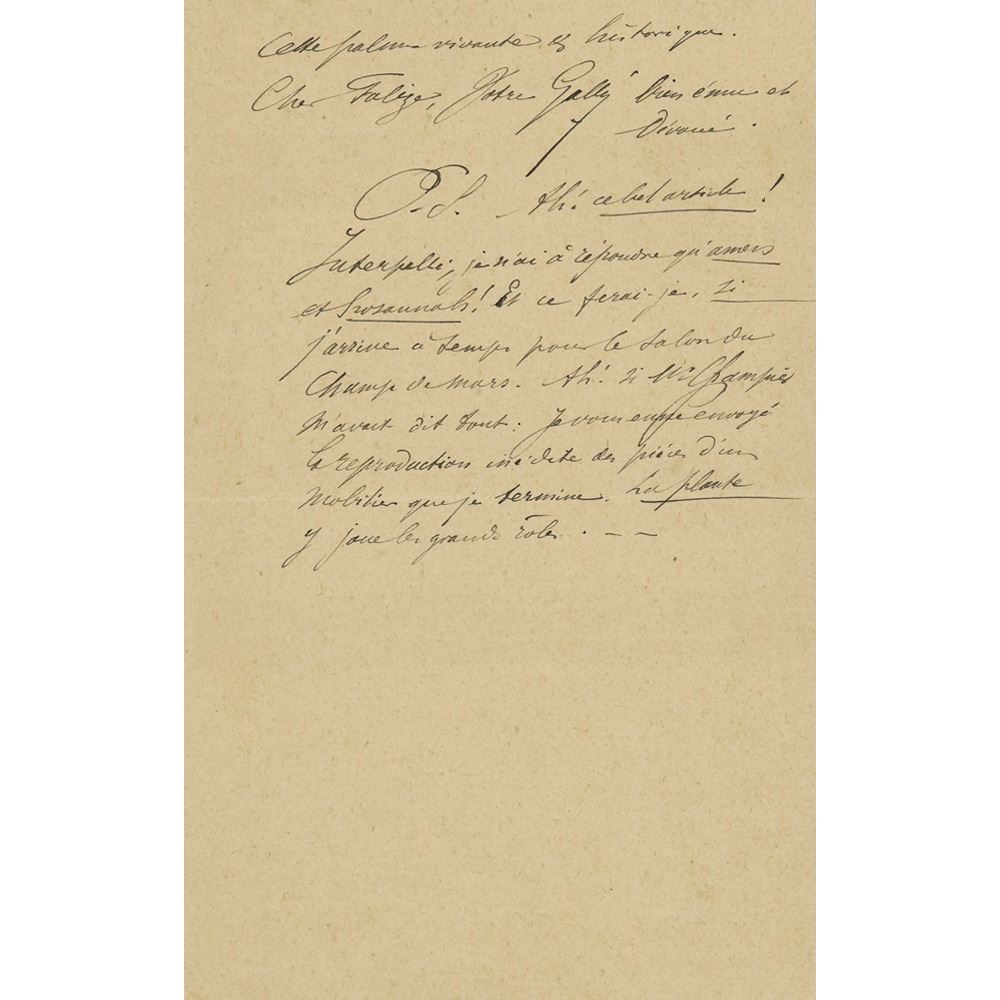 Cette palme vivante & historique.
Cher Falize, Votre Gallé bien ému et
Dévoué.
P.S. Ah! ce bel article!
Interpellé, je n'ai à répondre qu'amens
et hosannah! Et ce ferai-je, si
j'arrive à temps pour le salon du
Champ de mars. Ah! si Mr Champier
m'avait dit tout: Je vous eusse envoyé
la reproduction inédite des pièces d'un
mobilier que je termine. La plante
y joue les grands rôles. — —